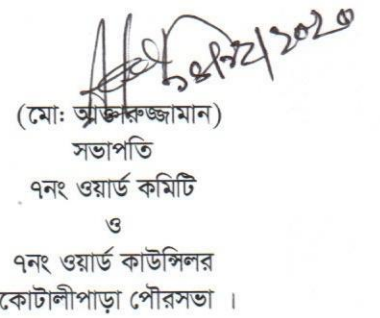 (মো: আক্তারুজ্জামান)
সভাপতি
৭নং ওয়ার্ড কমিটি
ও
৭নং ওয়ার্ড কাউন্সিলর
কোটালীপাড়া পৌরসভা ।